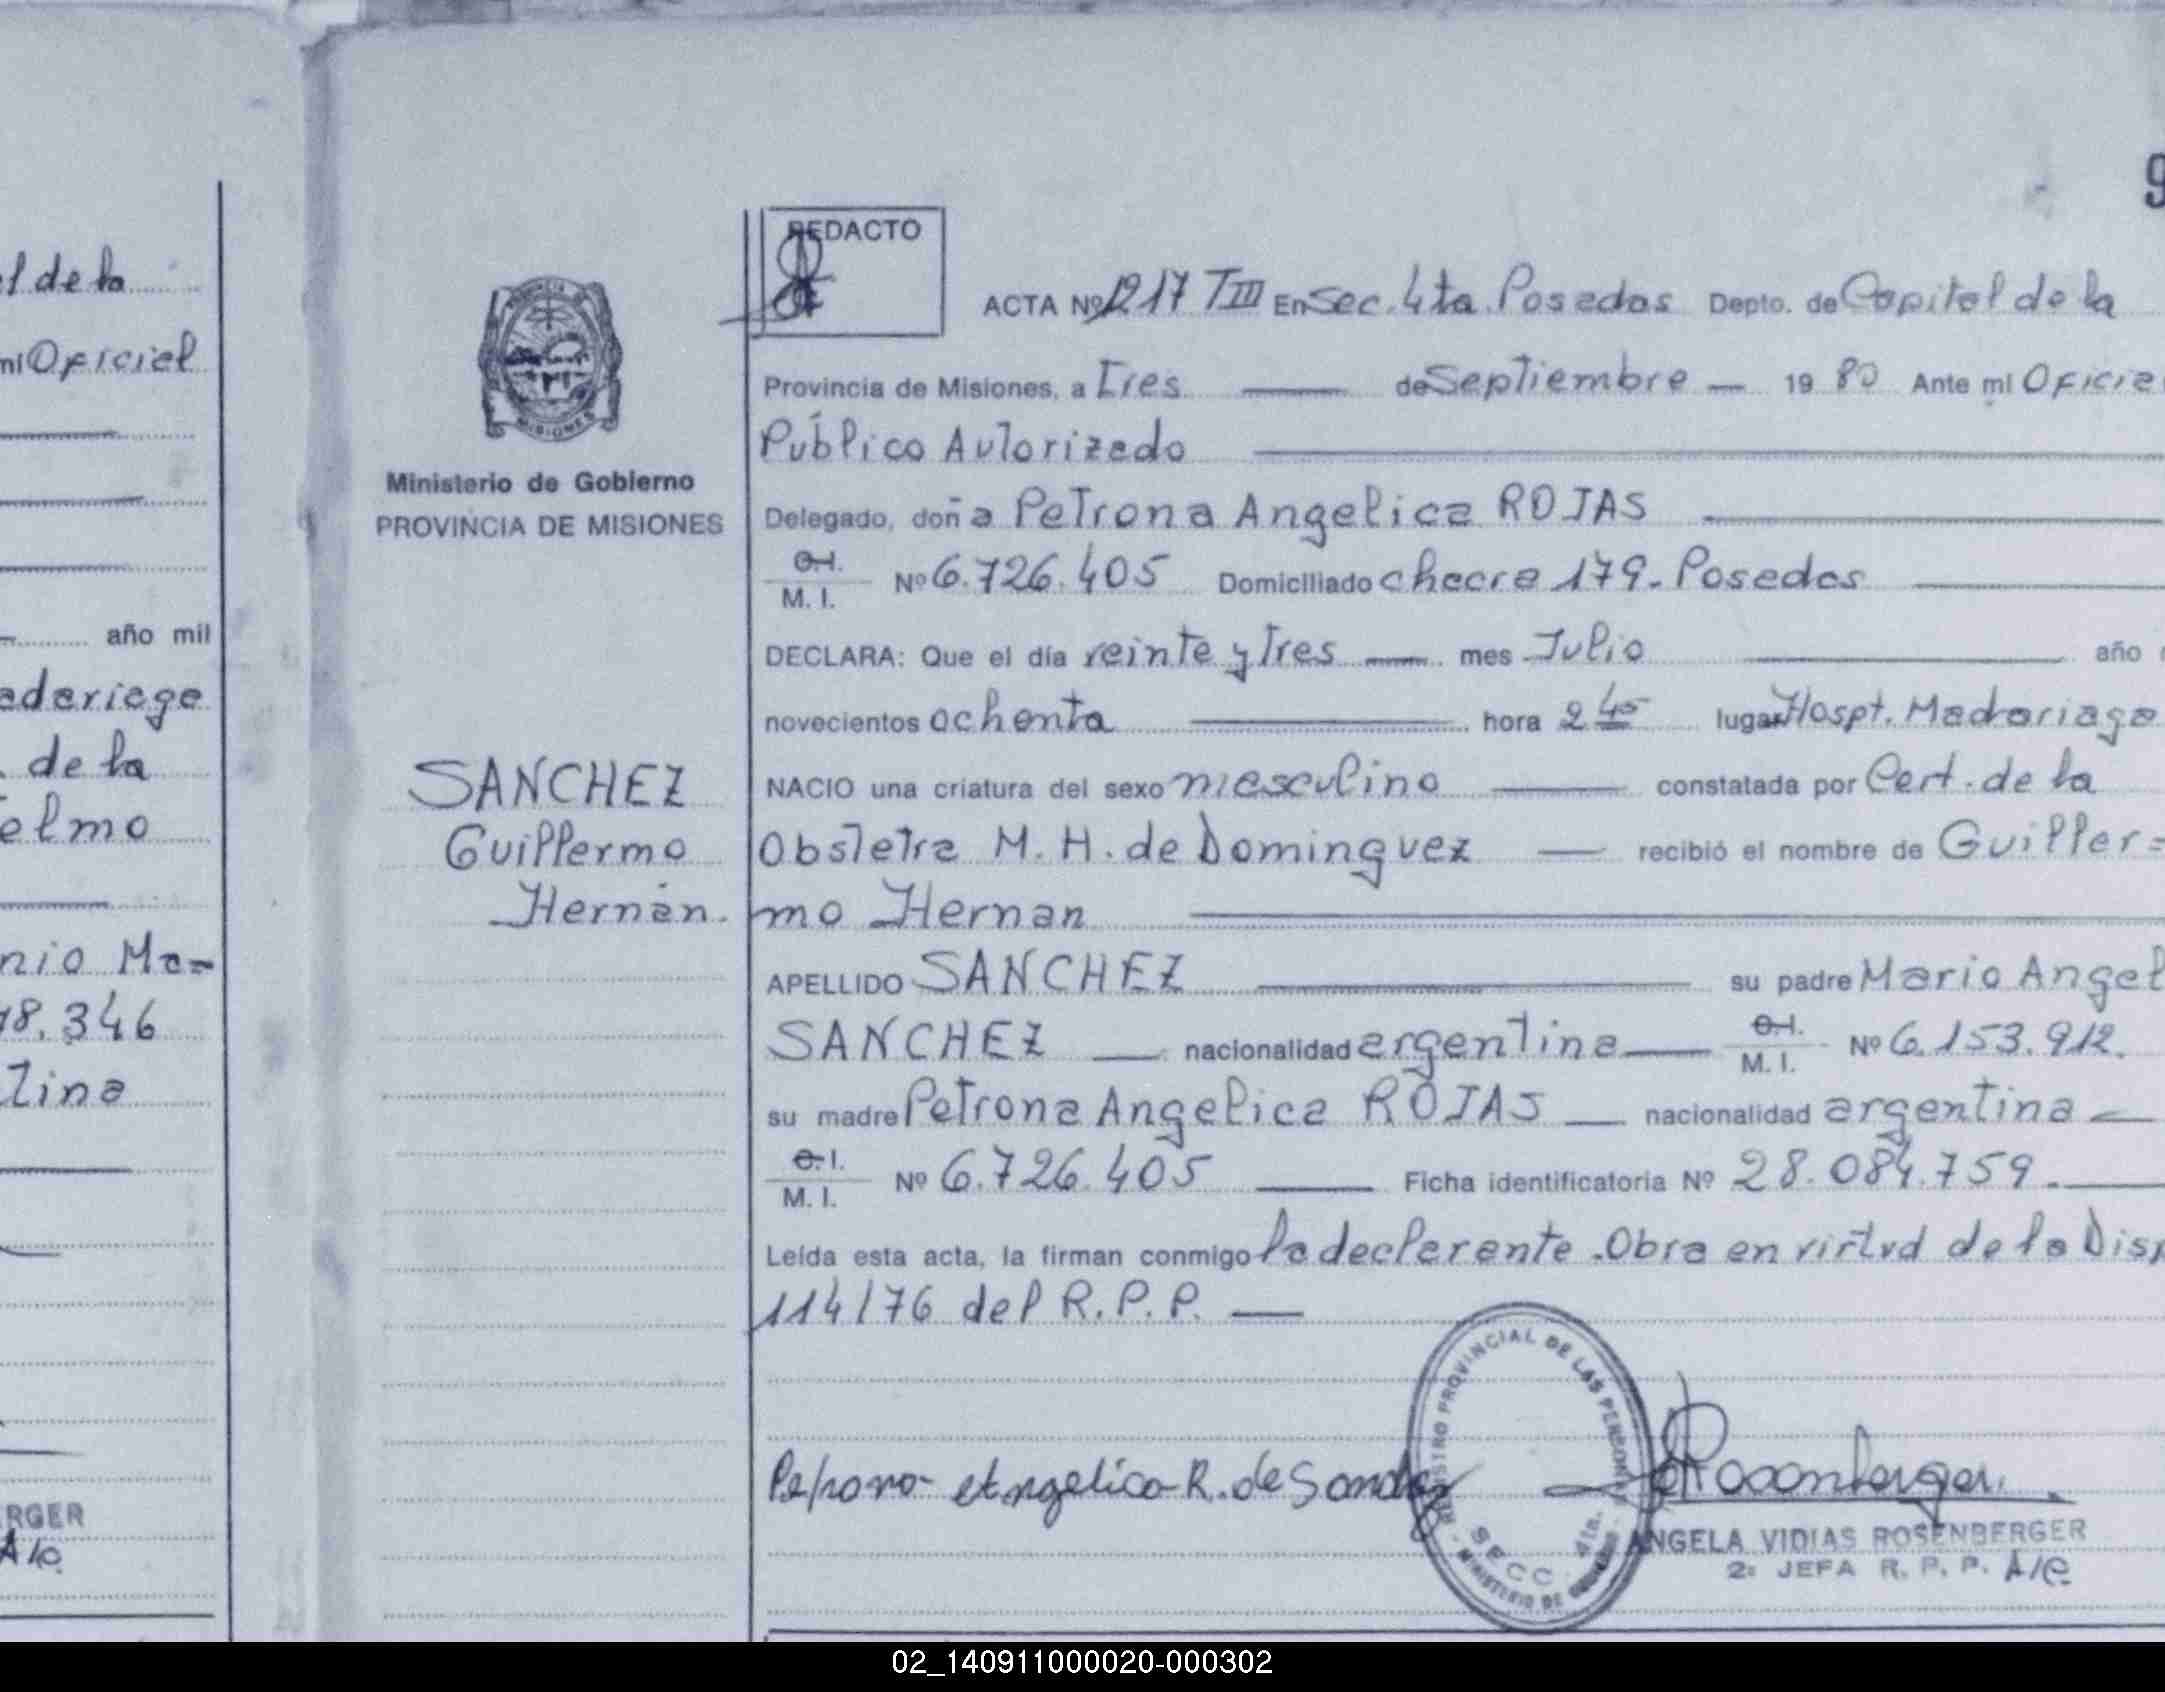 9
REDACTO
ACTA Nº 1217 T III En Sec. 4ta. Posadas Depto. de Capital de la
Provincia de Misiones, a Tres de Septiembre 19 80 Ante mi Oficia
Público Autorizado
Delegado, doña Petrona Angelica ROJAS
O.I.
M. I. Nº 6.726.405 Domiciliado chacra 179. Posadas
DECLARA: Que el día veinte y Tres mes Julio año
novecientos ochenta hora 2 45 lugar Hospt. Madariaga
NACIO una criatura del sexo masculino constatada por Cert. de la
Obstetra M. H. de Dominguez recibió el nombre de Guiller=
mo Hernan
APELLIDO SANCHEZ su padre Mario Angel
SANCHEZ nacionalidad argentina O.I.
M. I. Nº 6.153.912.
su madre Petrona Angelica ROJAS nacionalidad argentina
O.I.
M. I. Nº 6.726.405 Ficha identificatoria Nº 28.084.759.
Leída esta acta, la firman conmigo la declarante. Obra en virtud de la Disp
114/76 del R. P. P.
Ministerio de Gobierno
PROVINCIA DE MISIONES
SANCHEZ
Guillermo
Hernán.
PROVINCIA DE
MISIONES
Petrona Angelica R. de Sanchez
REGISTRO PROVINCIAL DE LAS PERSONAS
SECC. 4ta.
MINISTERIO DE GOBIERNO
Rosenberger
ANGELA VIDIAS ROSENBERGER
2ª JEFA R. P. P. A/C
l de la
mi Oficial
año mil
adariaga
. de la
elmo
nio Ma=
18.346
tina
RGER
A/c
02_140911000020-000302